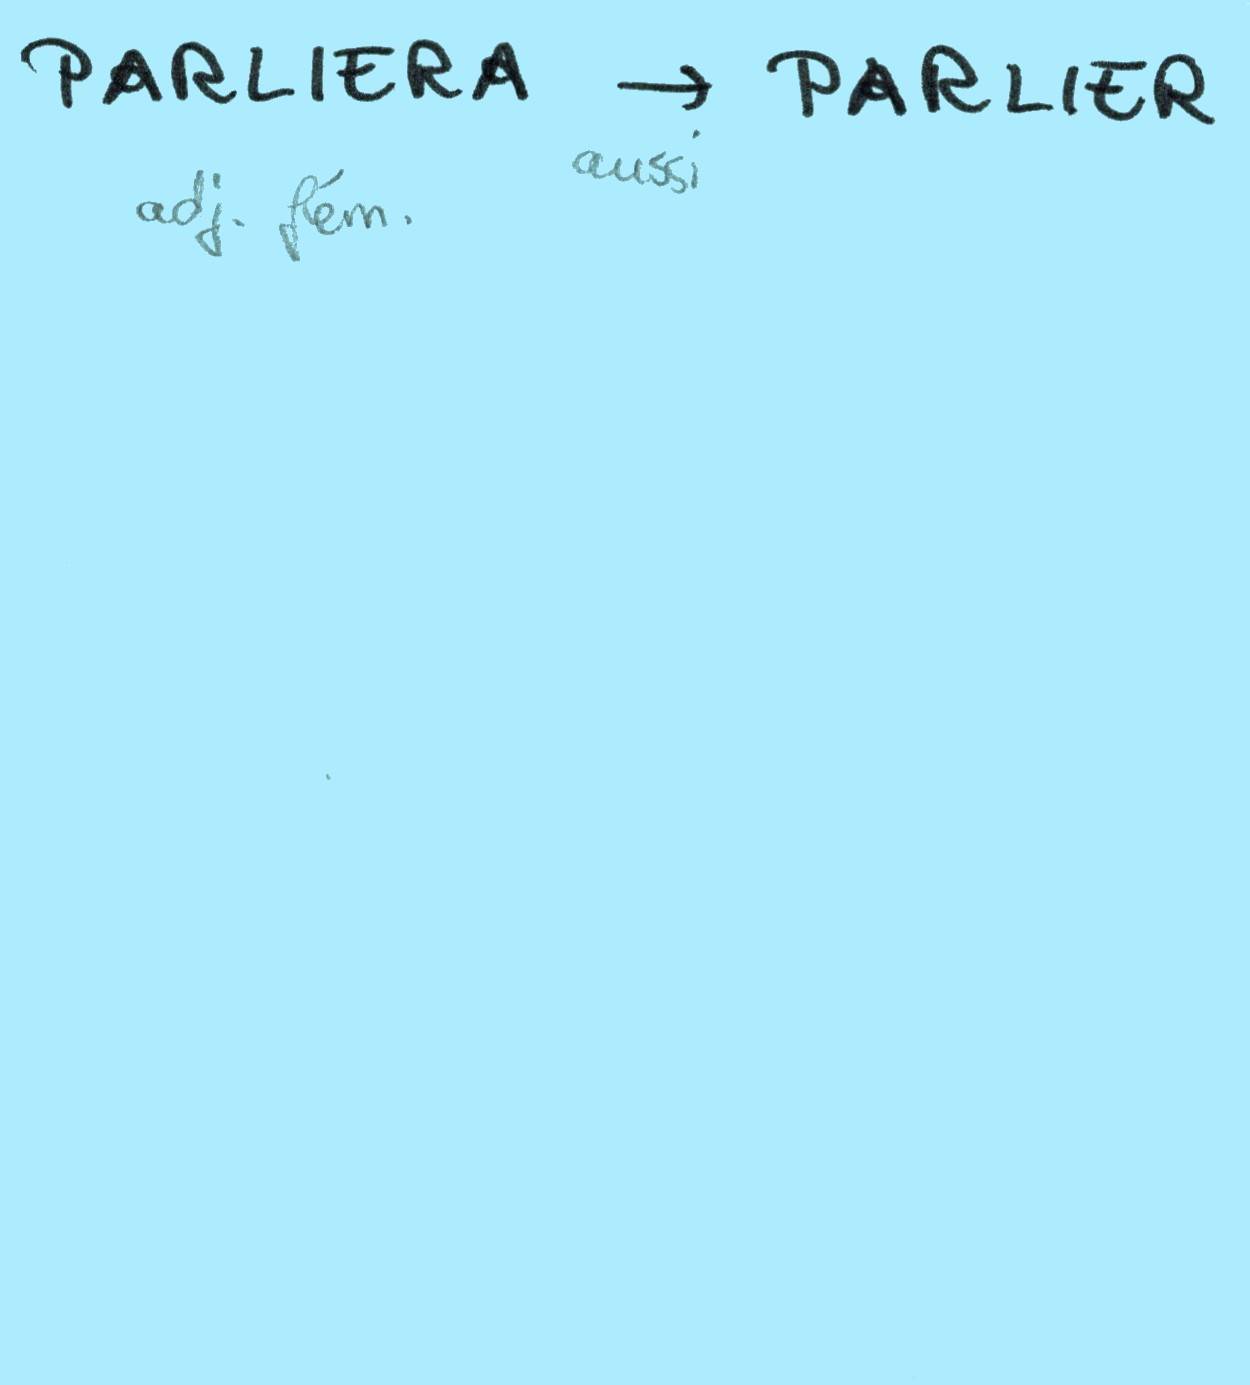 PARLIERA → PARLIER
aussi
adj. fém.